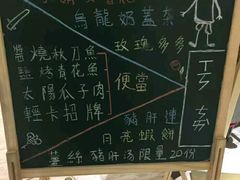 烏龍奶蓋茶
玫瑰多多
醬燒秋刀魚
鹽烤青花魚
太陽瓜子肉
輕卡招牌
便當
豬肝連
月亮蝦餅
薑絲豬肝湯限量20份